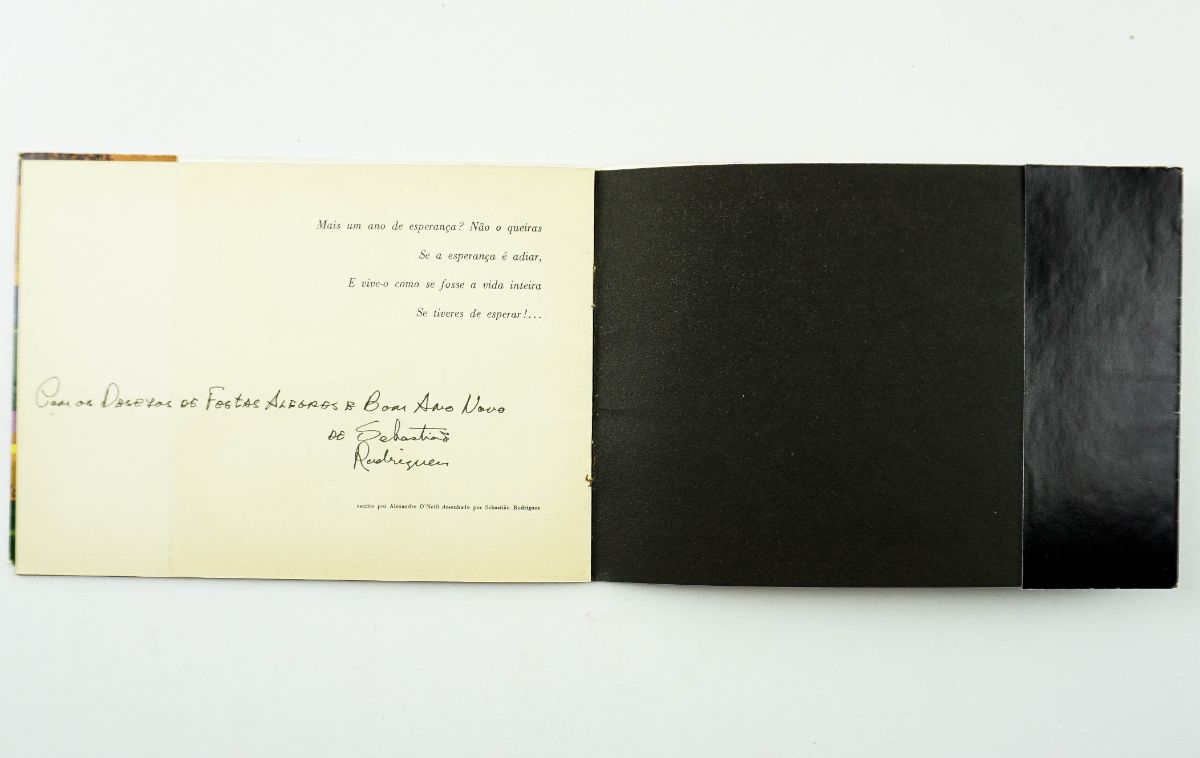 Mais um ano de esperança? Não o queiras
Se a esperança é adiar,
E vive-o como se fosse a vida inteira
Se tiveres de esperar!...
Com os Desejos de Festas Alegres e Bom Ano Novo
de Sebastião
Rodrigues
escrito por Alexandre O'Neill desenhado por Sebastião Rodrigues